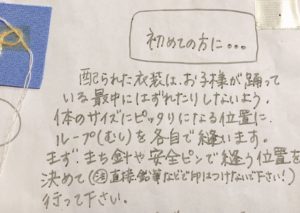 初めての方に…
配られた衣装は、お子様が踊って
いる最中にはずれたりしないよう、
体のサイズにピッタリになる位置に
ループ(むし)を各自で縫います。
まず、まち針や安全ピンで縫う位置を
決めて(注直接鉛筆などで印はつけないで下さい!)
行って下さい。